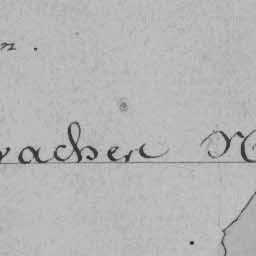 n.
racher N